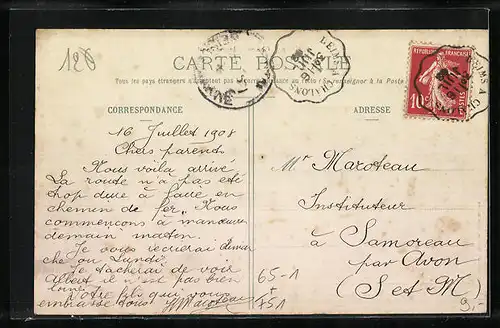 126
CARTE POSTALE
Tous les pays étrangers n'acceptent pas la correspondance au recto (Se renseigner à la Poste)
CORRESPONDANCE
ADRESSE
REIMS A CHALONS
REPUBLIQUE FRANÇAISE
10c
POSTES
16 Juillet 1908
Chers parents
Nous voila arrivé
La route n'a pas été
trop dure à faire en
chemin de fer. Nous
commençons à manœuvrer
demain matin.
Je vous ecrirai diman
che ou Lundi.
Je tacherai de voir
Albert il n'est pas bien
loin.
Votre fils qui vous
embrasse tous Maroteau
Mr Maroteau
Instituteur
à Samoreau
par Avon
(S et M)
65-1
+
751
9,-